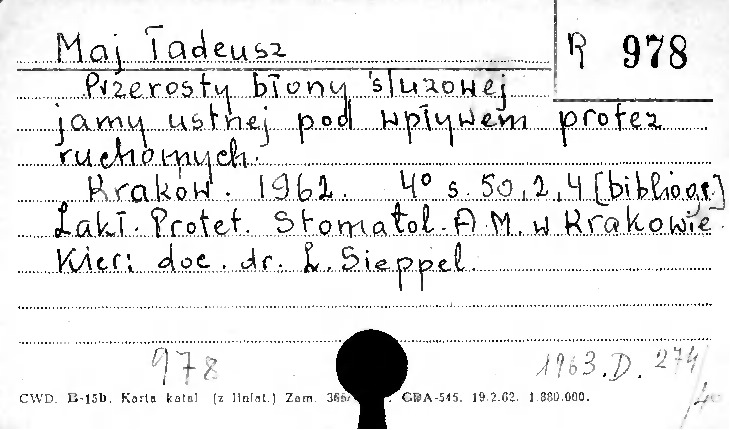 Maj Tadeusz R 978
Przerosty błony śluzowej
jamy ustnej pod wpływem protez
ruchomych.
Kraków. 1962. 4° s. 50,2,4 [bibliogr.]
Zakł. Protet. Stomatol. A.M. w Krakowie.
Kier: doc. dr. L. Sieppel.
978 1963.D.274/
CWD. B-15b. Karta katal (z liniat.) Zam. GDA-545. 19.2.62. 1.880.000.